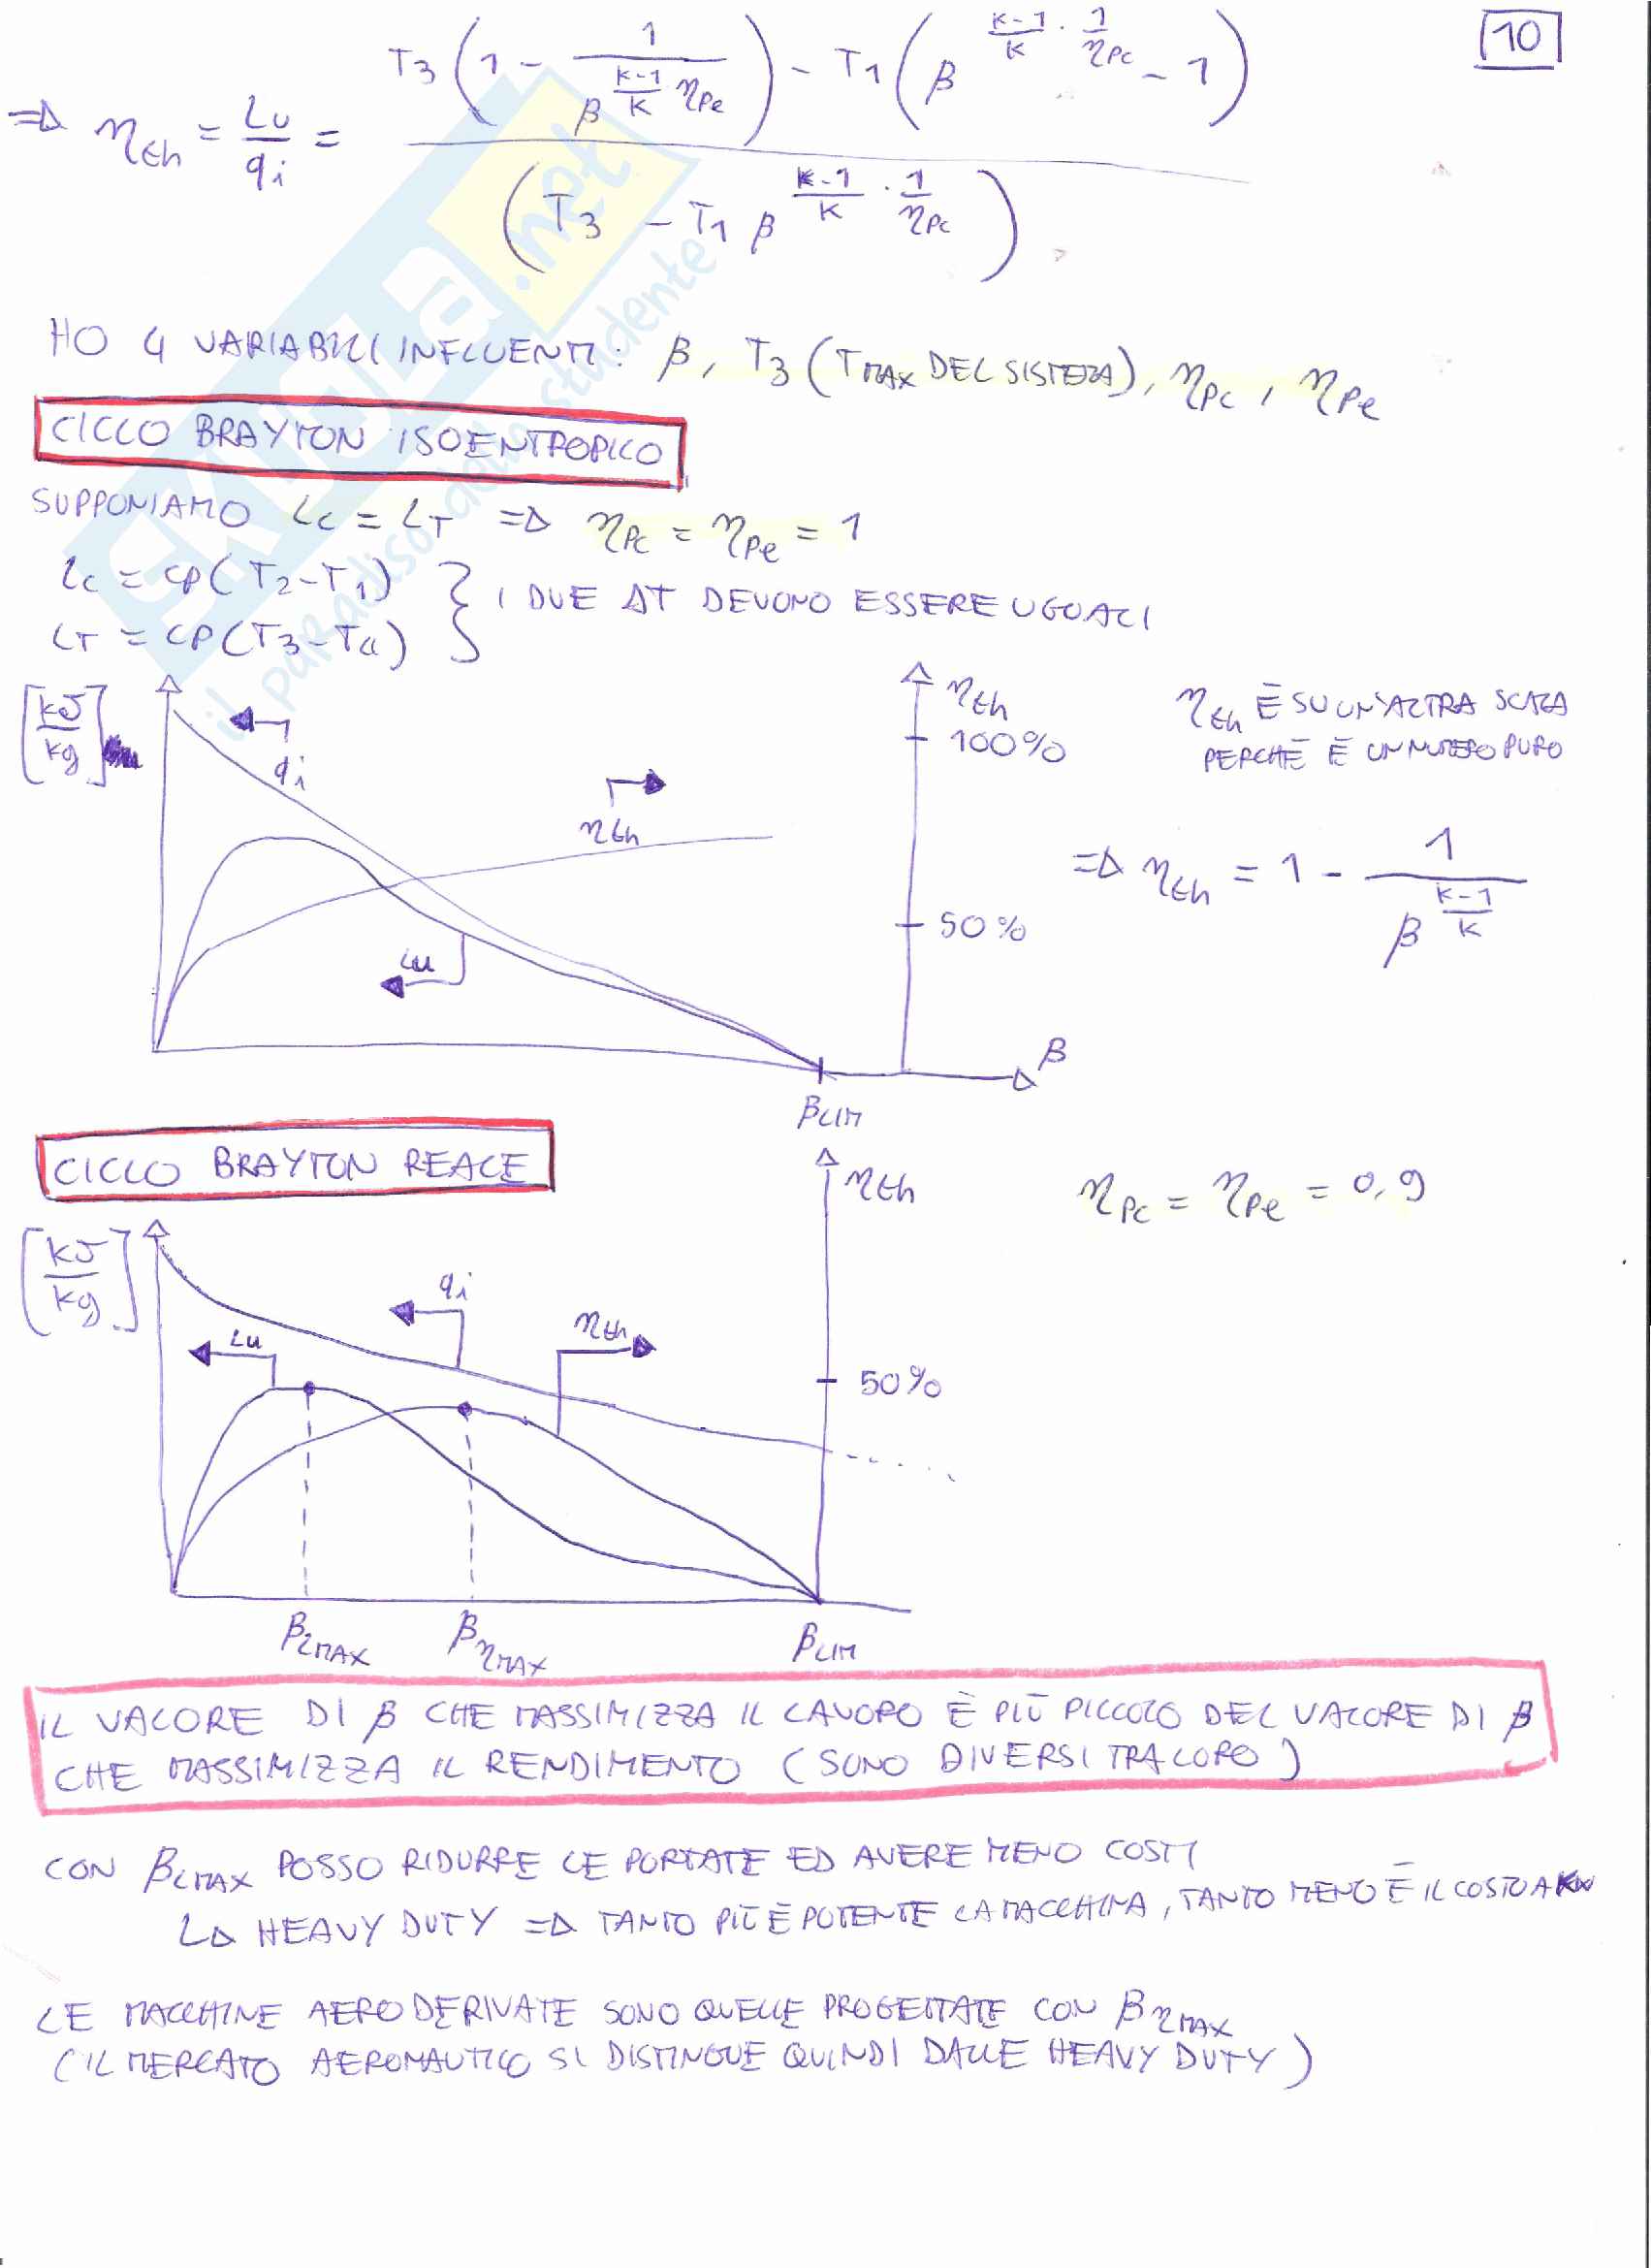 10
=> ηth = Lu/qi = [T3 (1 - 1/β^((k-1)/k · ηpe)) - T1 (β^((k-1)/k · 1/ηpc) - 1)] / (T3 - T1 β^((k-1)/k · 1/ηpc))
HO 4 VARIABILI INFLUENTI: β, T3 (TMAX DEL SISTEMA), ηpc, ηpe
CICLO BRAYTON ISOENTROPICO
SUPPONIAMO LC = LT => ηpc = ηpe = 1
LC = CP(T2-T1) } I DUE ΔT DEVONO ESSERE UGUALI
LT = CP(T3-T4)
[kJ/kg]
qi
ηth
Lu
ηth
100%
50%
β
βLIM
ηth È SU UN'ALTRA SCALA
PERCHÈ È UN NUMERO PURO
=> ηth = 1 - 1/β^((k-1)/k)
CICLO BRAYTON REALE
ηpc = ηpe = 0,9
[kJ/kg]
Lu
qi
ηth
ηth
50%
βLMAX
βηMAX
βLIM
IL VALORE DI β CHE MASSIMIZZA IL LAVORO È PIÙ PICCOLO DEL VALORE DI β
CHE MASSIMIZZA IL RENDIMENTO (SONO DIVERSI TRA LORO)
CON βLMAX POSSO RIDURRE LE PORTATE ED AVERE MENO COSTI
↳ HEAVY DUTY => TANTO PIÙ È POTENTE LA MACCHINA, TANTO MENO È IL COSTO A KW
LE MACCHINE AERODERIVATE SONO QUELLE PROGETTATE CON βηMAX
(IL MERCATO AERONAUTICO SI DISTINGUE QUINDI DALLE HEAVY DUTY)
SKUOLA.net
il paradiso dello studente